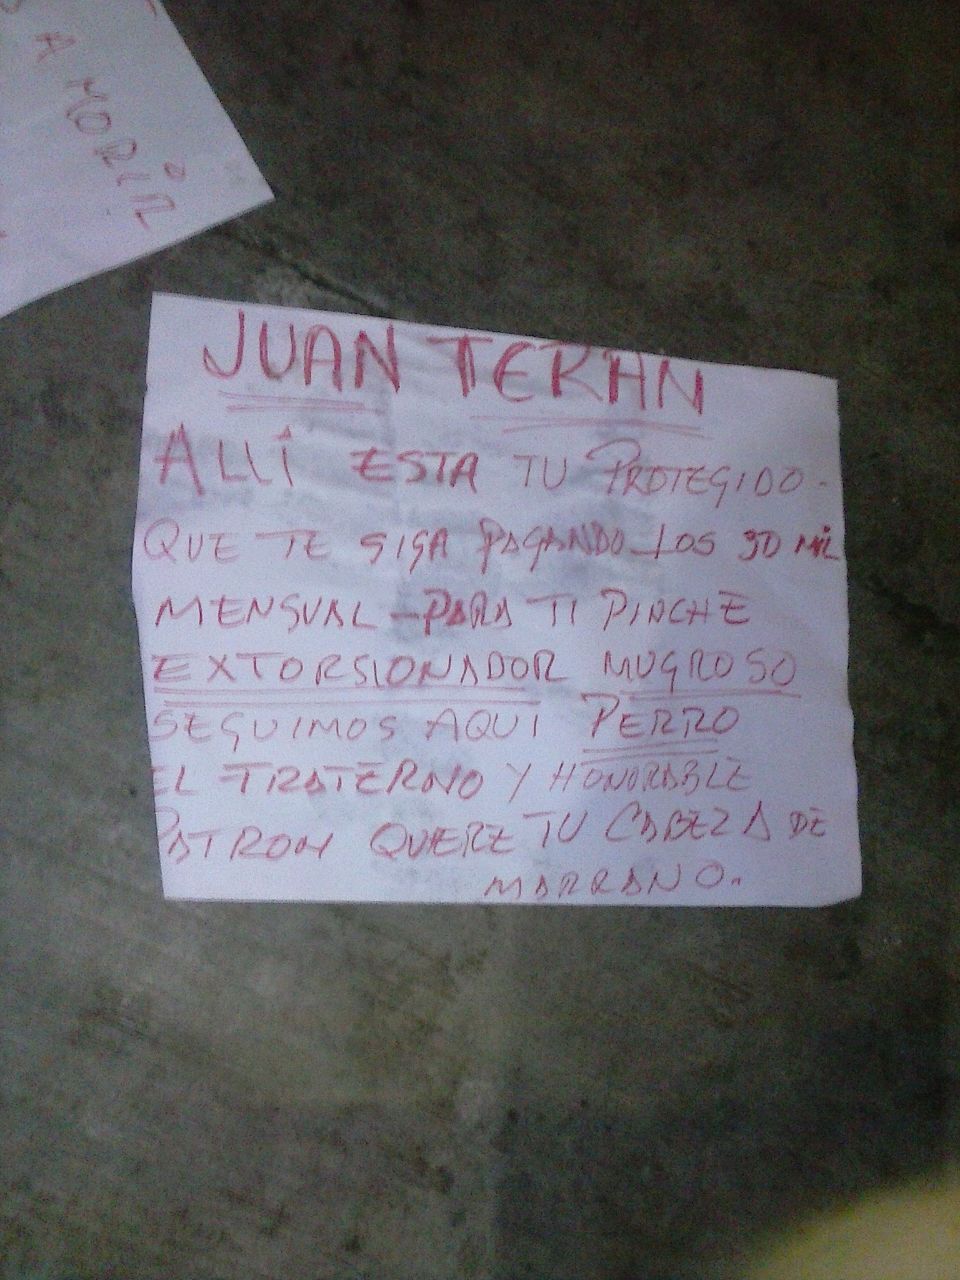 A MORIR
JUAN TERAN
ALLÍ ESTA TU PROTEGIDO.
QUE TE SIGA PAGANDO LOS 50 MIL
MENSUAL - PARA TI PINCHE
EXTORSIONADOR MUGROSO
SEGUIMOS AQUI PERRO
EL TRATERNO Y HONORABLE
PATRON QUIERE TU CABEZA DE
MARRANO.